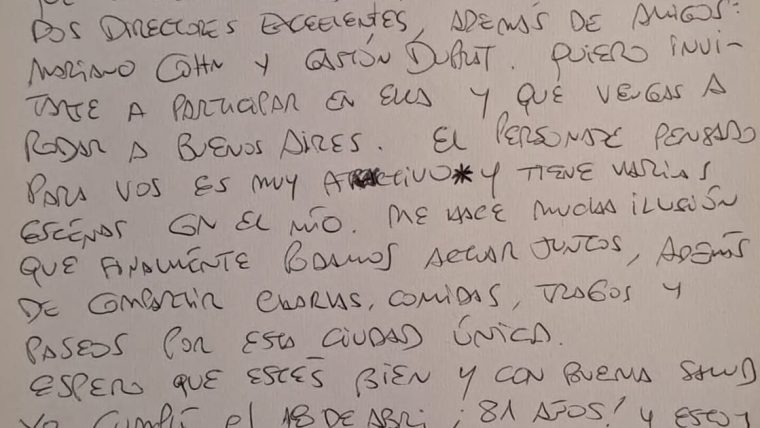 DOS DIRECTORES EXCELENTES, ADEMÁS DE AMIGOS:
MARIANO COHN Y GASTÓN DUPRAT. QUIERO INVI-
TARTE A PARTICIPAR EN ELLA Y QUE VENGAS A
RODAR A BUENOS AIRES. EL PERSONAJE PENSADO
PARA VOS ES MUY ATRACTIVO* Y TIENE VARIAS
ESCENAS CON EL MÍO. ME HACE MUCHA ILUSIÓN
QUE FINALMENTE PODAMOS ACTUAR JUNTOS, ADEMÁS
DE COMPARTIR CHARLAS, COMIDAS, TRAGOS Y
PASEOS POR ESTA CIUDAD ÚNICA.
ESPERO QUE ESTÉS BIEN Y CON BUENA SALUD
YO CUMPLÍ EL 18 DE ABRI ¡81 AÑOS! Y ESTOY